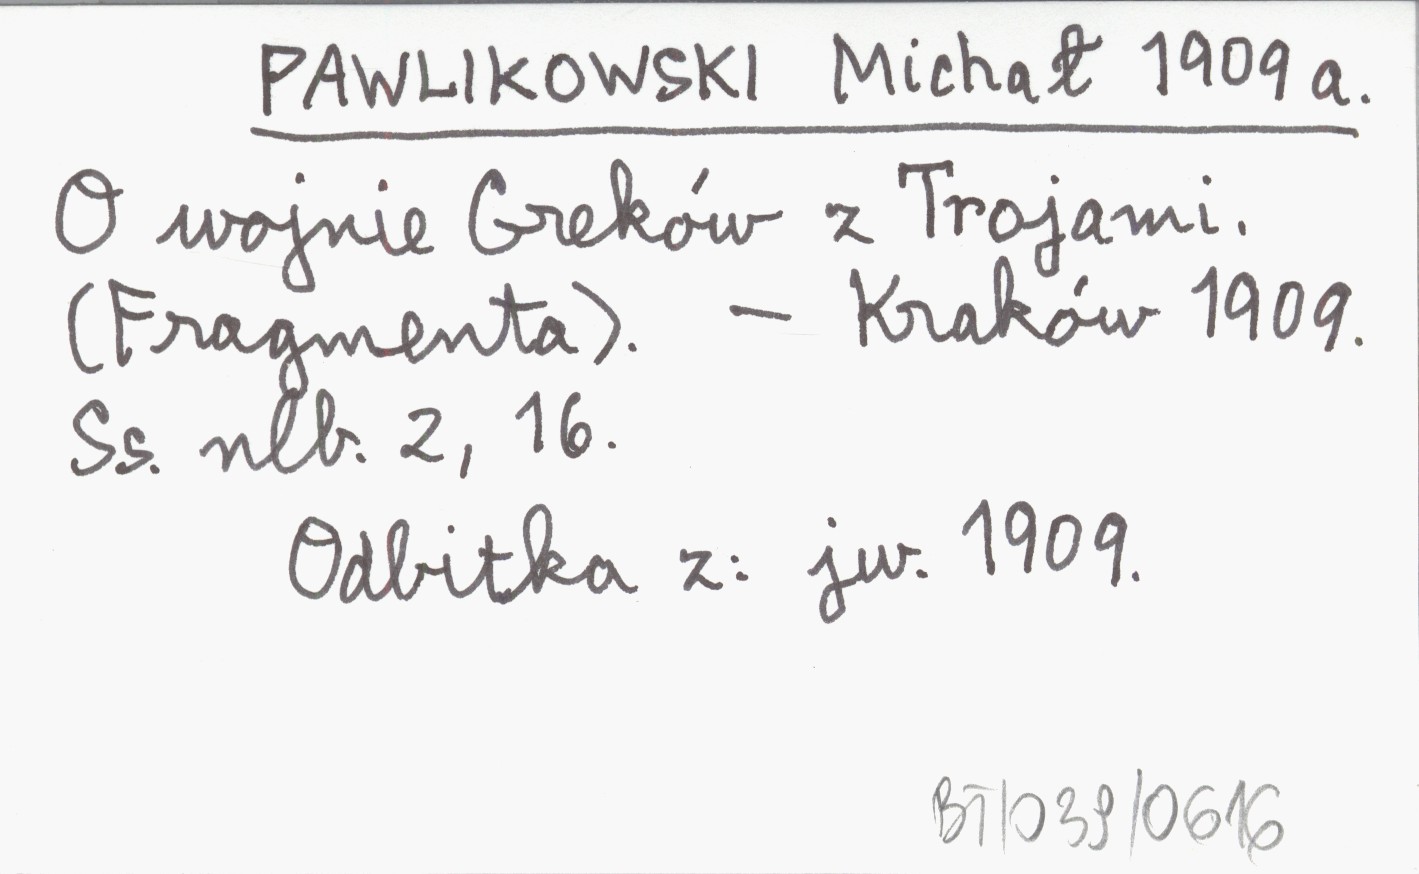 PAWLIKOWSKI Michał 1909 a.
O wojnie Greków z Trojami.
(Fragmenta). — Kraków 1909.
Ss. nlb. 2, 16.
Odbitka z: jw. 1909.
BT/039/0616